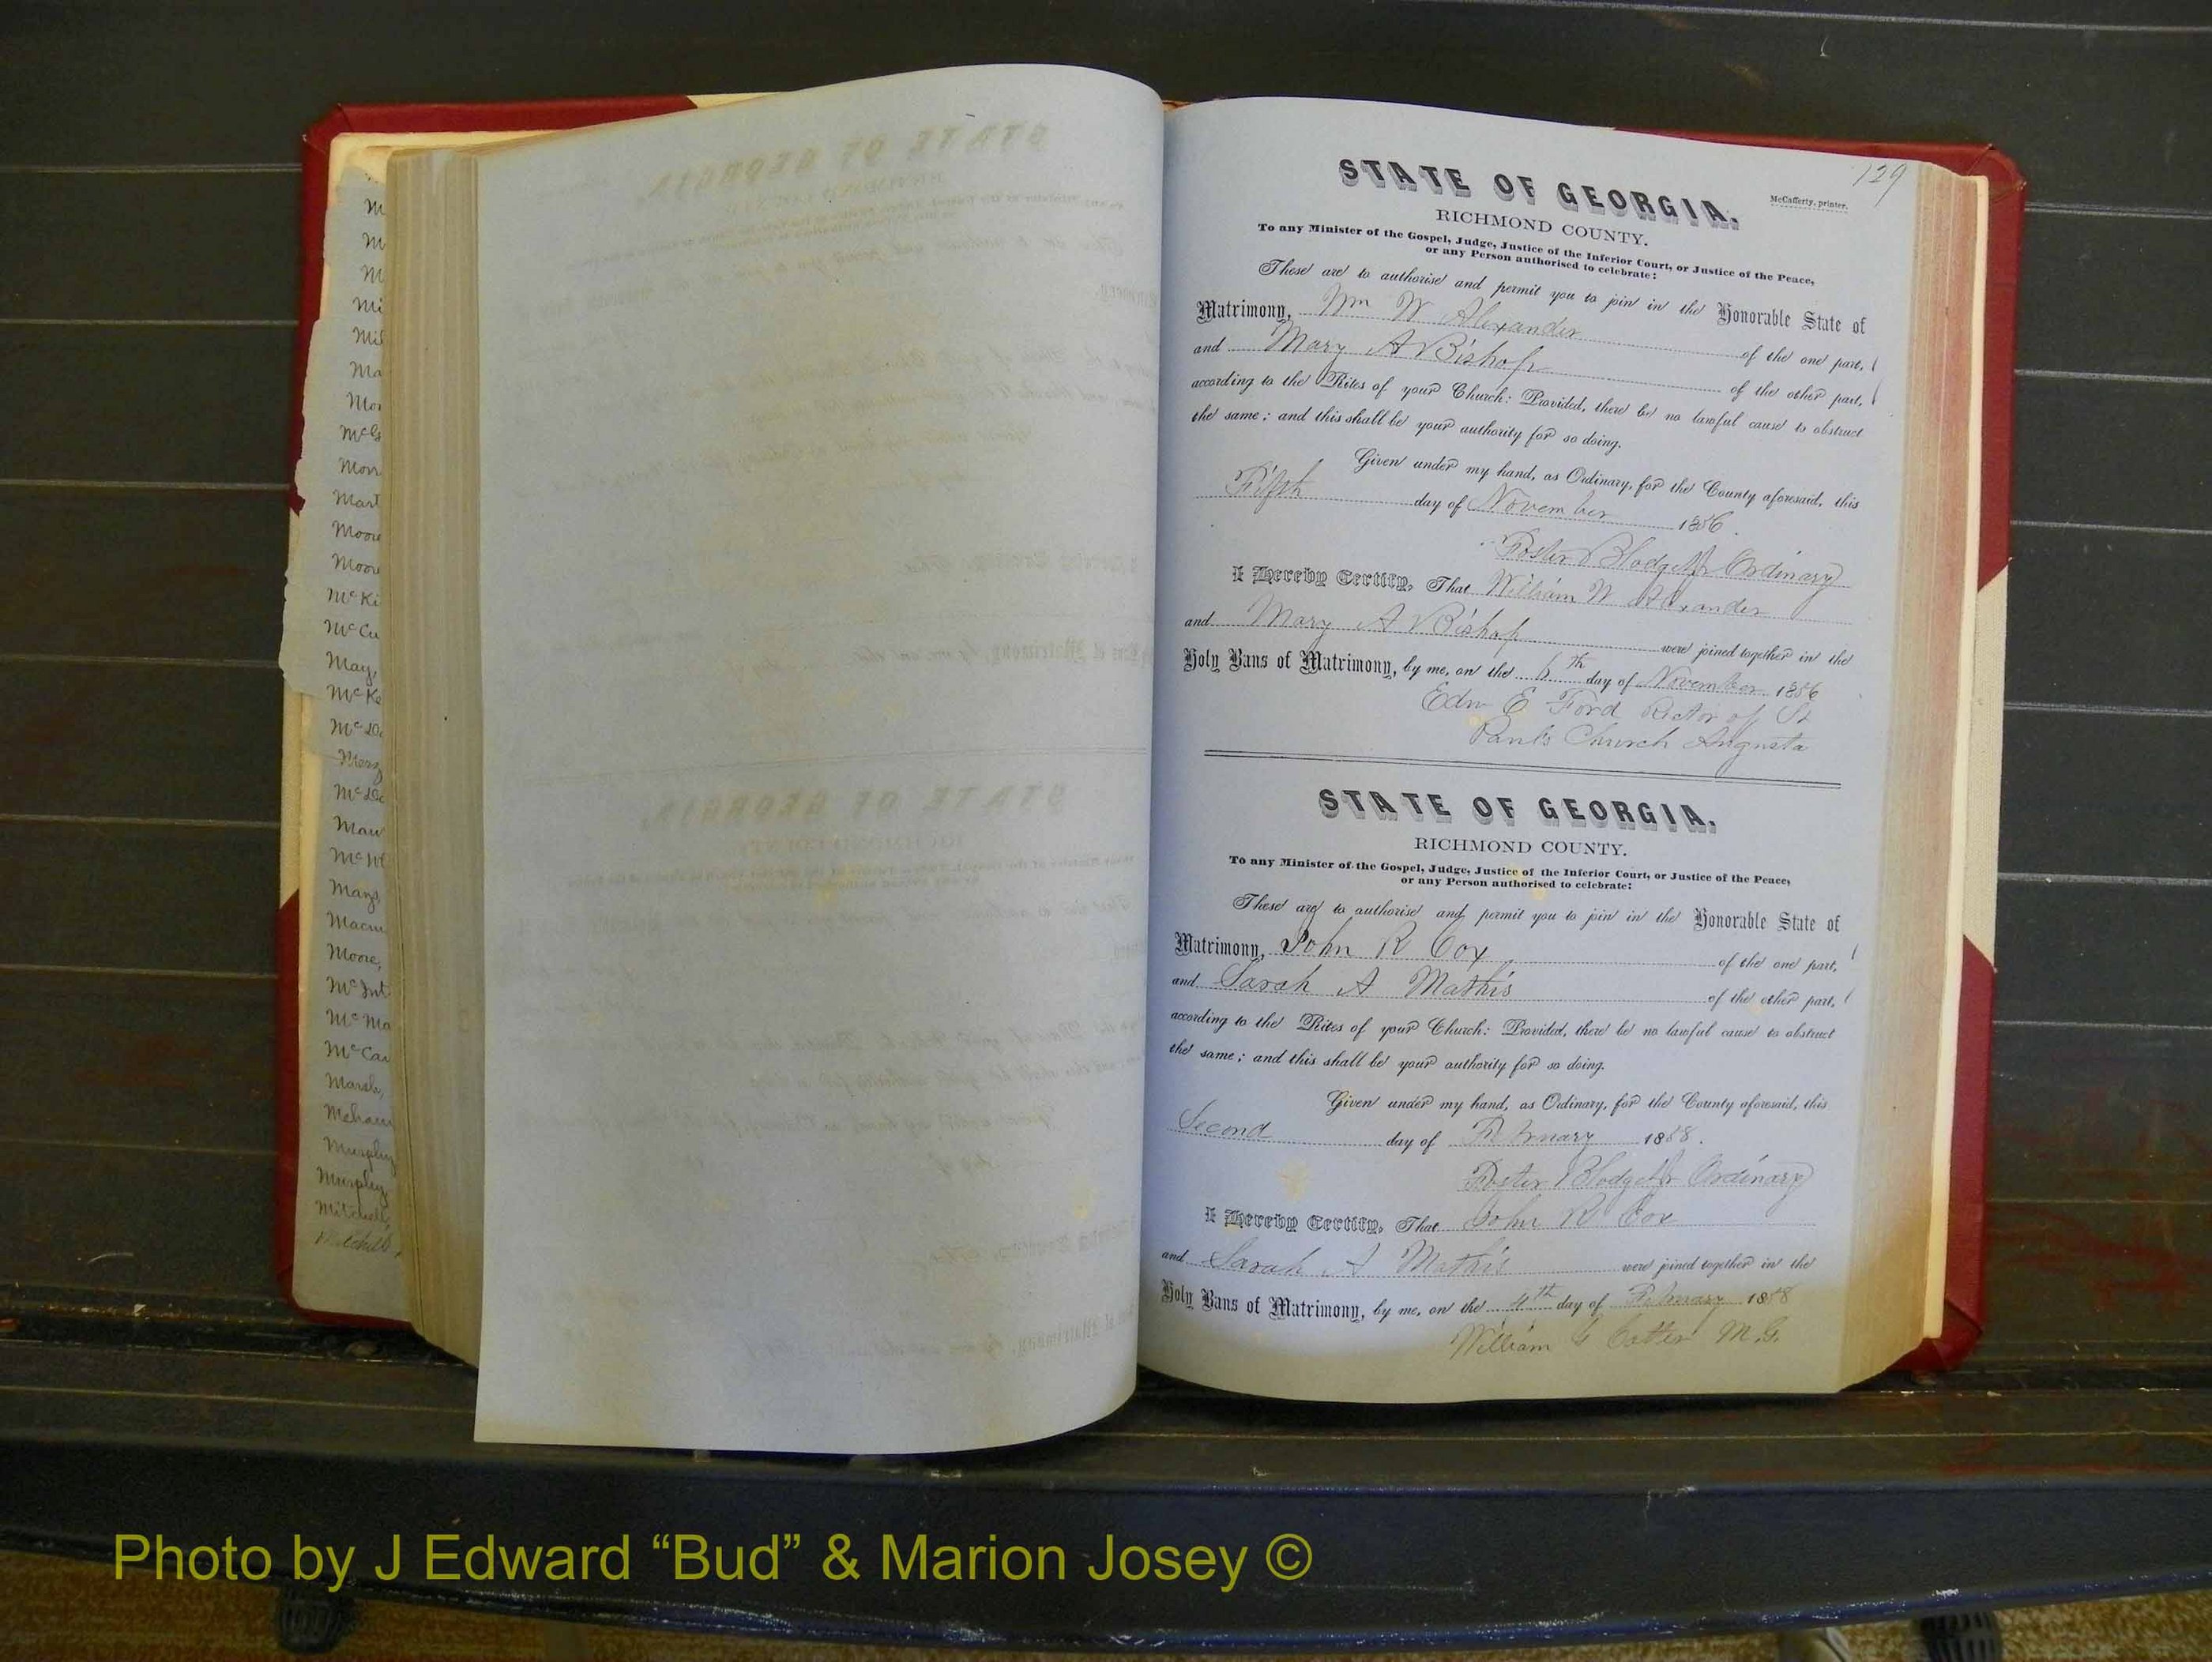 M
M
M
Mi
Mil
Ma
Mor
McG
Morr
Mart
Moore
Moore
McKi
McCu
May,
McKe
McDo
Morg
McDo
Maw
Mays
Macm
Moore,
McInt
McMa
McCar
Marsh,
Murphy
Murphy
Mitchell,
Mitchell,
129
STATE OF GEORGIA.
McCafferty, printer.
RICHMOND COUNTY.
To any Minister of the Gospel, Judge, Justice of the Inferior Court, or Justice of the Peace,
or any Person authorised to celebrate:
These are to authorise and permit you to join in the Honorable State of
Matrimony, Wm W Alexander of the one part,
and Mary A Bishop of the other part,
according to the Rites of your Church: Provided, there be no lawful cause to obstruct
the same; and this shall be your authority for so doing.
Given under my hand, as Ordinary, for the County aforesaid, this
Fifth day of November 1856.
Foster Blodget Jr Ordinary
I Hereby Certify, That William W Alexander
and Mary A Bishop were joined together in the
Holy Bans of Matrimony, by me, on the 6th day of November 1856
Edw E Ford Rector of St
Paul's Church Augusta
STATE OF GEORGIA.
RICHMOND COUNTY.
To any Minister of the Gospel, Judge, Justice of the Inferior Court, or Justice of the Peace,
or any Person authorised to celebrate:
These are to authorise and permit you to join in the Honorable State of
Matrimony, John R Cox of the one part,
and Sarah A Mathis of the other part,
according to the Rites of your Church: Provided, there be no lawful cause to obstruct
the same; and this shall be your authority for so doing.
Given under my hand, as Ordinary, for the County aforesaid, this
Second day of February 1858.
Foster Blodget Jr Ordinary
I Hereby Certify, That John R Cox
and Sarah A Mathis were joined together in the
Holy Bans of Matrimony, by me, on the 4th day of February 1858
William G M.G.
Photo by J Edward “Bud” & Marion Josey ©